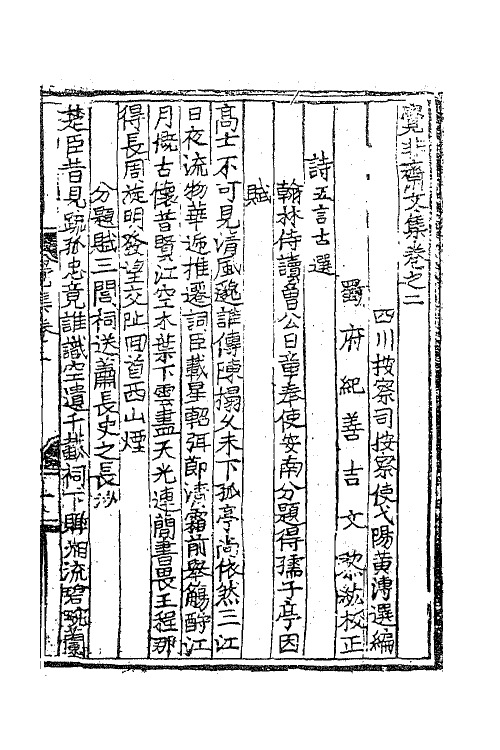 覺非齋文集卷之二
四川按察司按察使弋陽黃溥選編
蜀府紀善吉文黎紘校正
詩五言古選
翰林侍讀曾公日章奉使安南分題得孺子亭因
賦
高士不可見清風邈誰傳陳榻久未下孤亭尚依然三江
日夜流物華逝推遷詞臣戴星軺弭節濤霜前舉觴酹江
月慨古懷昔賢江空木葉下雲盡天光連簡書畏王程那
得長周旋明發望交阯回首西山煙
分題賦三閭祠送蕭長史之長沙
楚臣昔見疏孤忠竟誰識空遺千載祠下瞰湘流碧琬蘭